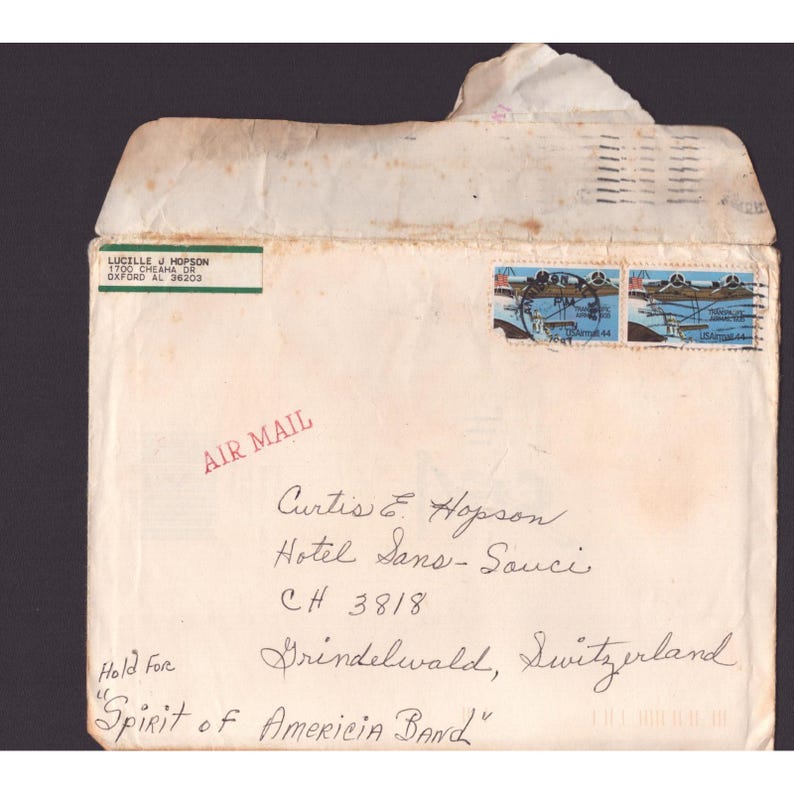 LUCILLE J HOPSON
1700 CHEAHA DR
OXFORD AL 36203
ANNISTON AL
PM
TRANSPACIFIC
AIRMAIL 1935
USAirmail 44
TRANSPACIFIC
AIRMAIL 1935
USAirmail 44
AIR MAIL
Curtis E. Hopson
Hotel Sans-Souci
CH 3818
Grindelwald, Switzerland
Hold For
"Spirit of Americia Band"